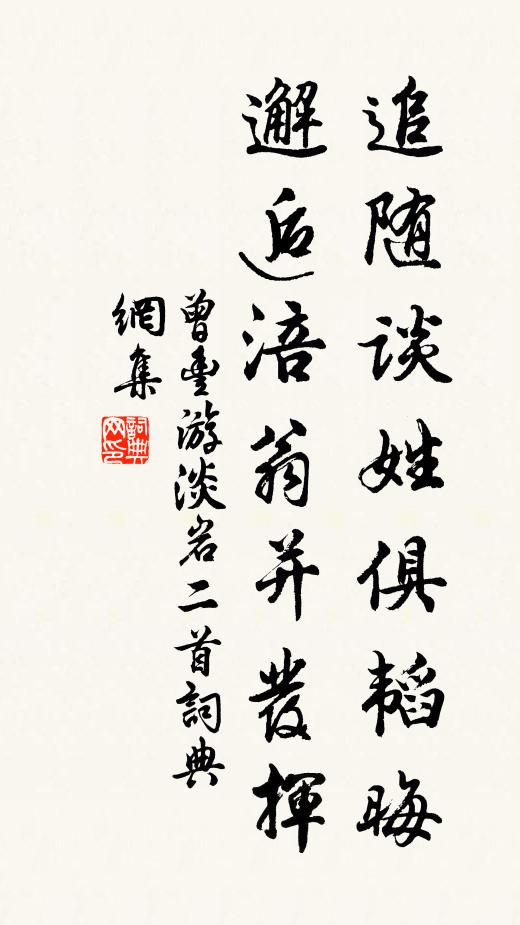 追随谈姓俱韬晦
邂逅涪翁并發揮
曾豐游淡岩二首詞典
網集
詞典
网印